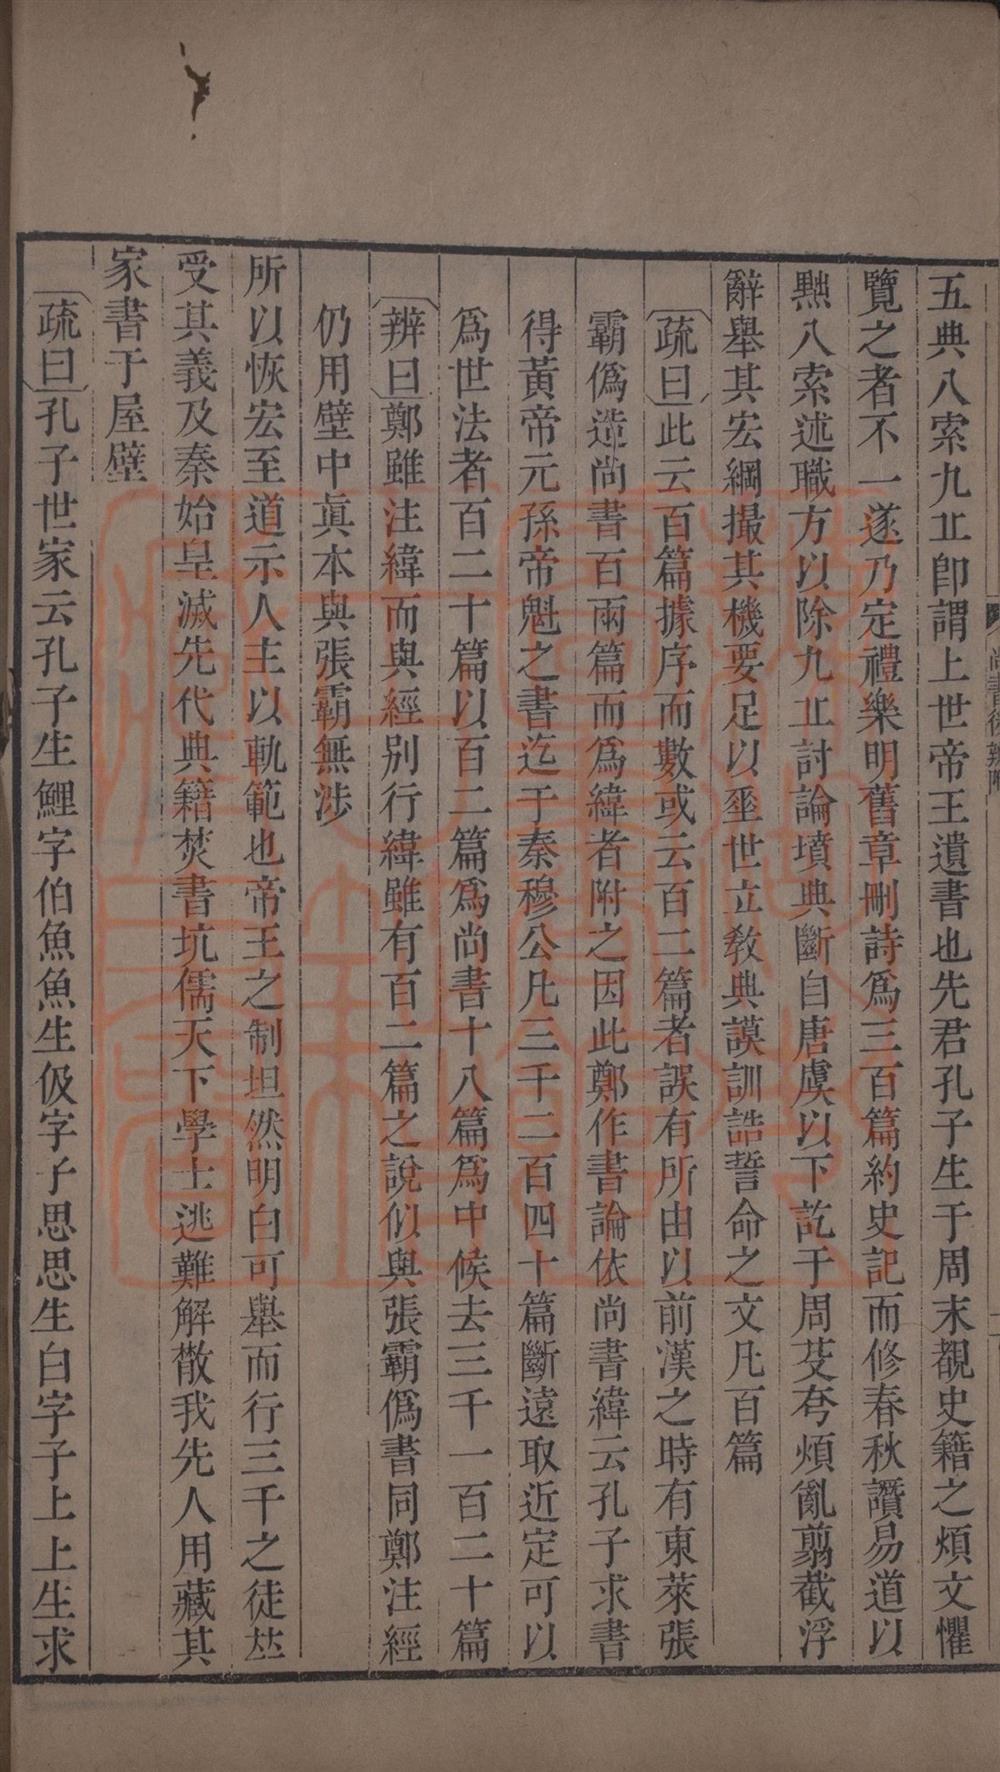 尚書後辨附
五典八索九丠卽謂上世帝王遺書也先君孔子生于周末覩史籍之煩文懼
覽之者不一遂乃定禮樂明舊章刪詩爲三百篇約史記而修春秋讚易道以
黜八索述職方以除九丠討論墳典斷自唐虞以下訖于周芟夸煩亂翦截浮
辭舉其宏綱撮其機要足以垂世立敎典謨訓誥誓命之文凡百篇
疏曰此云百篇據序而數或云百二篇者誤有所由以前漢之時有東萊張
霸僞造尚書百兩篇而爲緯者附之因此鄭作書論依尚書緯云孔子求書
得黃帝元孫帝魁之書迄于秦穆公凡三千二百四十篇斷遠取近定可以
爲世法者百二十篇以百二篇爲尚書十八篇爲中候去三千一百二十篇
辨曰鄭雖注緯而與經別行緯雖有百二篇之說似與張霸僞書同鄭注經
仍用壁中眞本與張霸無涉
所以恢宏至道示人主以軌範也帝王之制坦然明白可舉而行三千之徒並
受其義及秦始皇滅先代典籍焚書坑儒天下學士逃難解散我先人用藏其
家書于屋壁
疏曰孔子世家云孔子生鯉字伯魚魚生伋字子思思生白字子上上生求